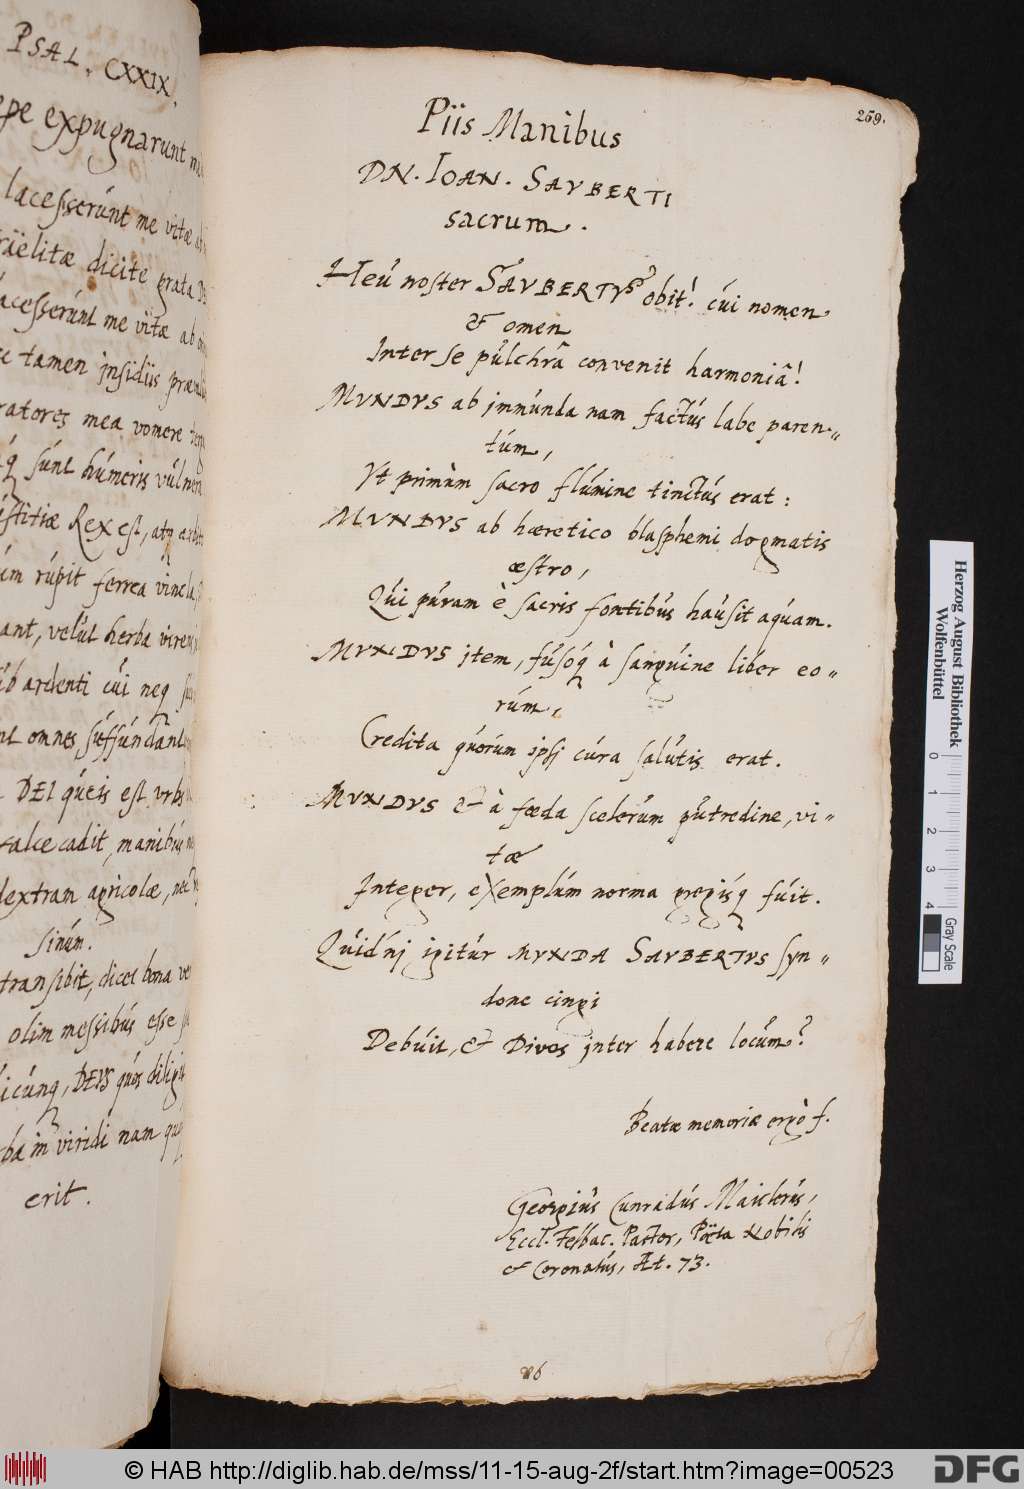 PSAL. CXXIX.
epe expugnarunt
lacesserúnt me vitæ
raëlitæ dicite grata
acesserúnt me vitæ ab
tamen jnsidiis
ratores mea vomere
q sunt húmeris
ustitiæ Rex est, atq
úm rúpit ferrea vincla
ant, velút herba
ardenti cúi neq
omnes súffúndant
DEI quéis est vrbs
falce cadit, manibús
dextram agricolæ, nec
sinúm.
transibit, dicet bona
olim messibús esse
icúnq, DEVS quos
in viridi nam
erit.
259.
Piis Manibus
DN. IOAN. SAVBERTI
sacrum.
Heú noster SAVBERTVS obit! cúi nomen
& omen
Inter se púlchrâ convenit harmoniâ!
MVNDVS ab jmmúnda nam factús labe paren„
túm,
Vt primùm sacro flúmine tinctús erat:
MVNDVS ab hæretico blasphemi dogmatis
æstro,
Qúi púram è sacris fontibús haúsit aqúam.
MVNDVS jtem, fúsóq à sangúine liber eo„
rúm,
Credita qúorúm ipsj cúra salútis erat.
MVNDVS & à fœda scelerúm pútredine, vi„
tæ
Integer, exemplúm norma gregisq fúit.
Qúidnj igitúr MVNDA SAVBERTVS syn„
done cingi
Debúit, & Divos jnter habere locúm?
Beatæ memoriæ ergò f.
Georgiús Cunradús Maiclerús,
Eccl. Felbac. Pastor, Pöeta Nobilis
& Coronatús, Æt. 73.
Herzog August Bibliothek
Wolfenbüttel
0
1
2
3
4
Gray Scale
© HAB http://diglib.hab.de/mss/11-15-aug-2f/start.htm?image=00523
DFG